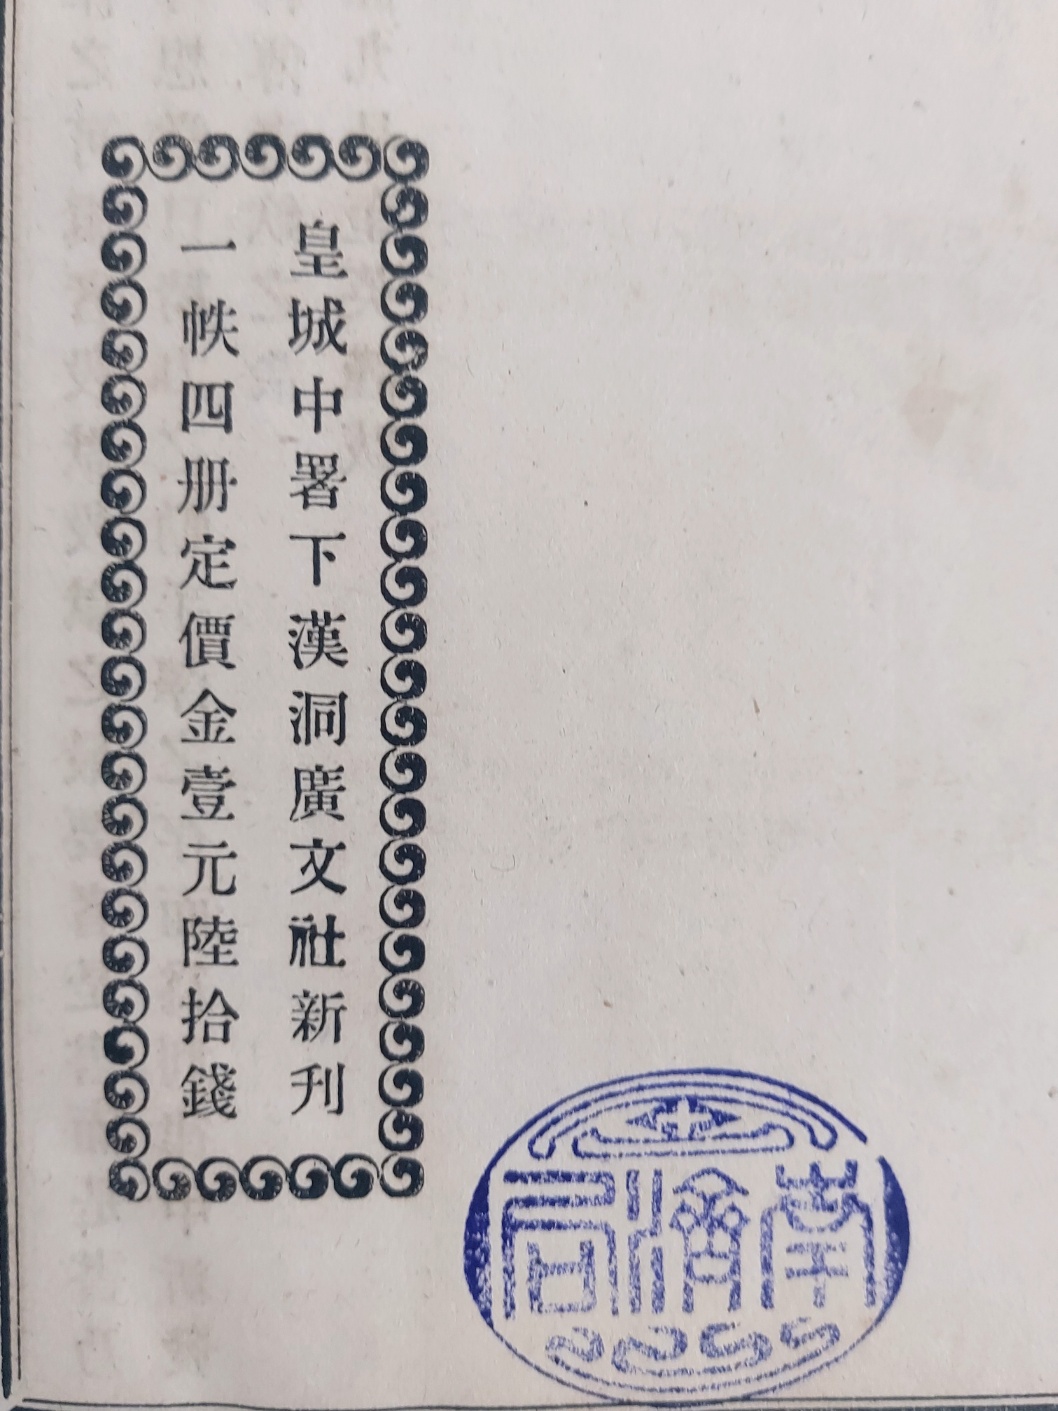 皇城中署下漢洞廣文社新刊
一帙四册定價金壹元陸拾錢